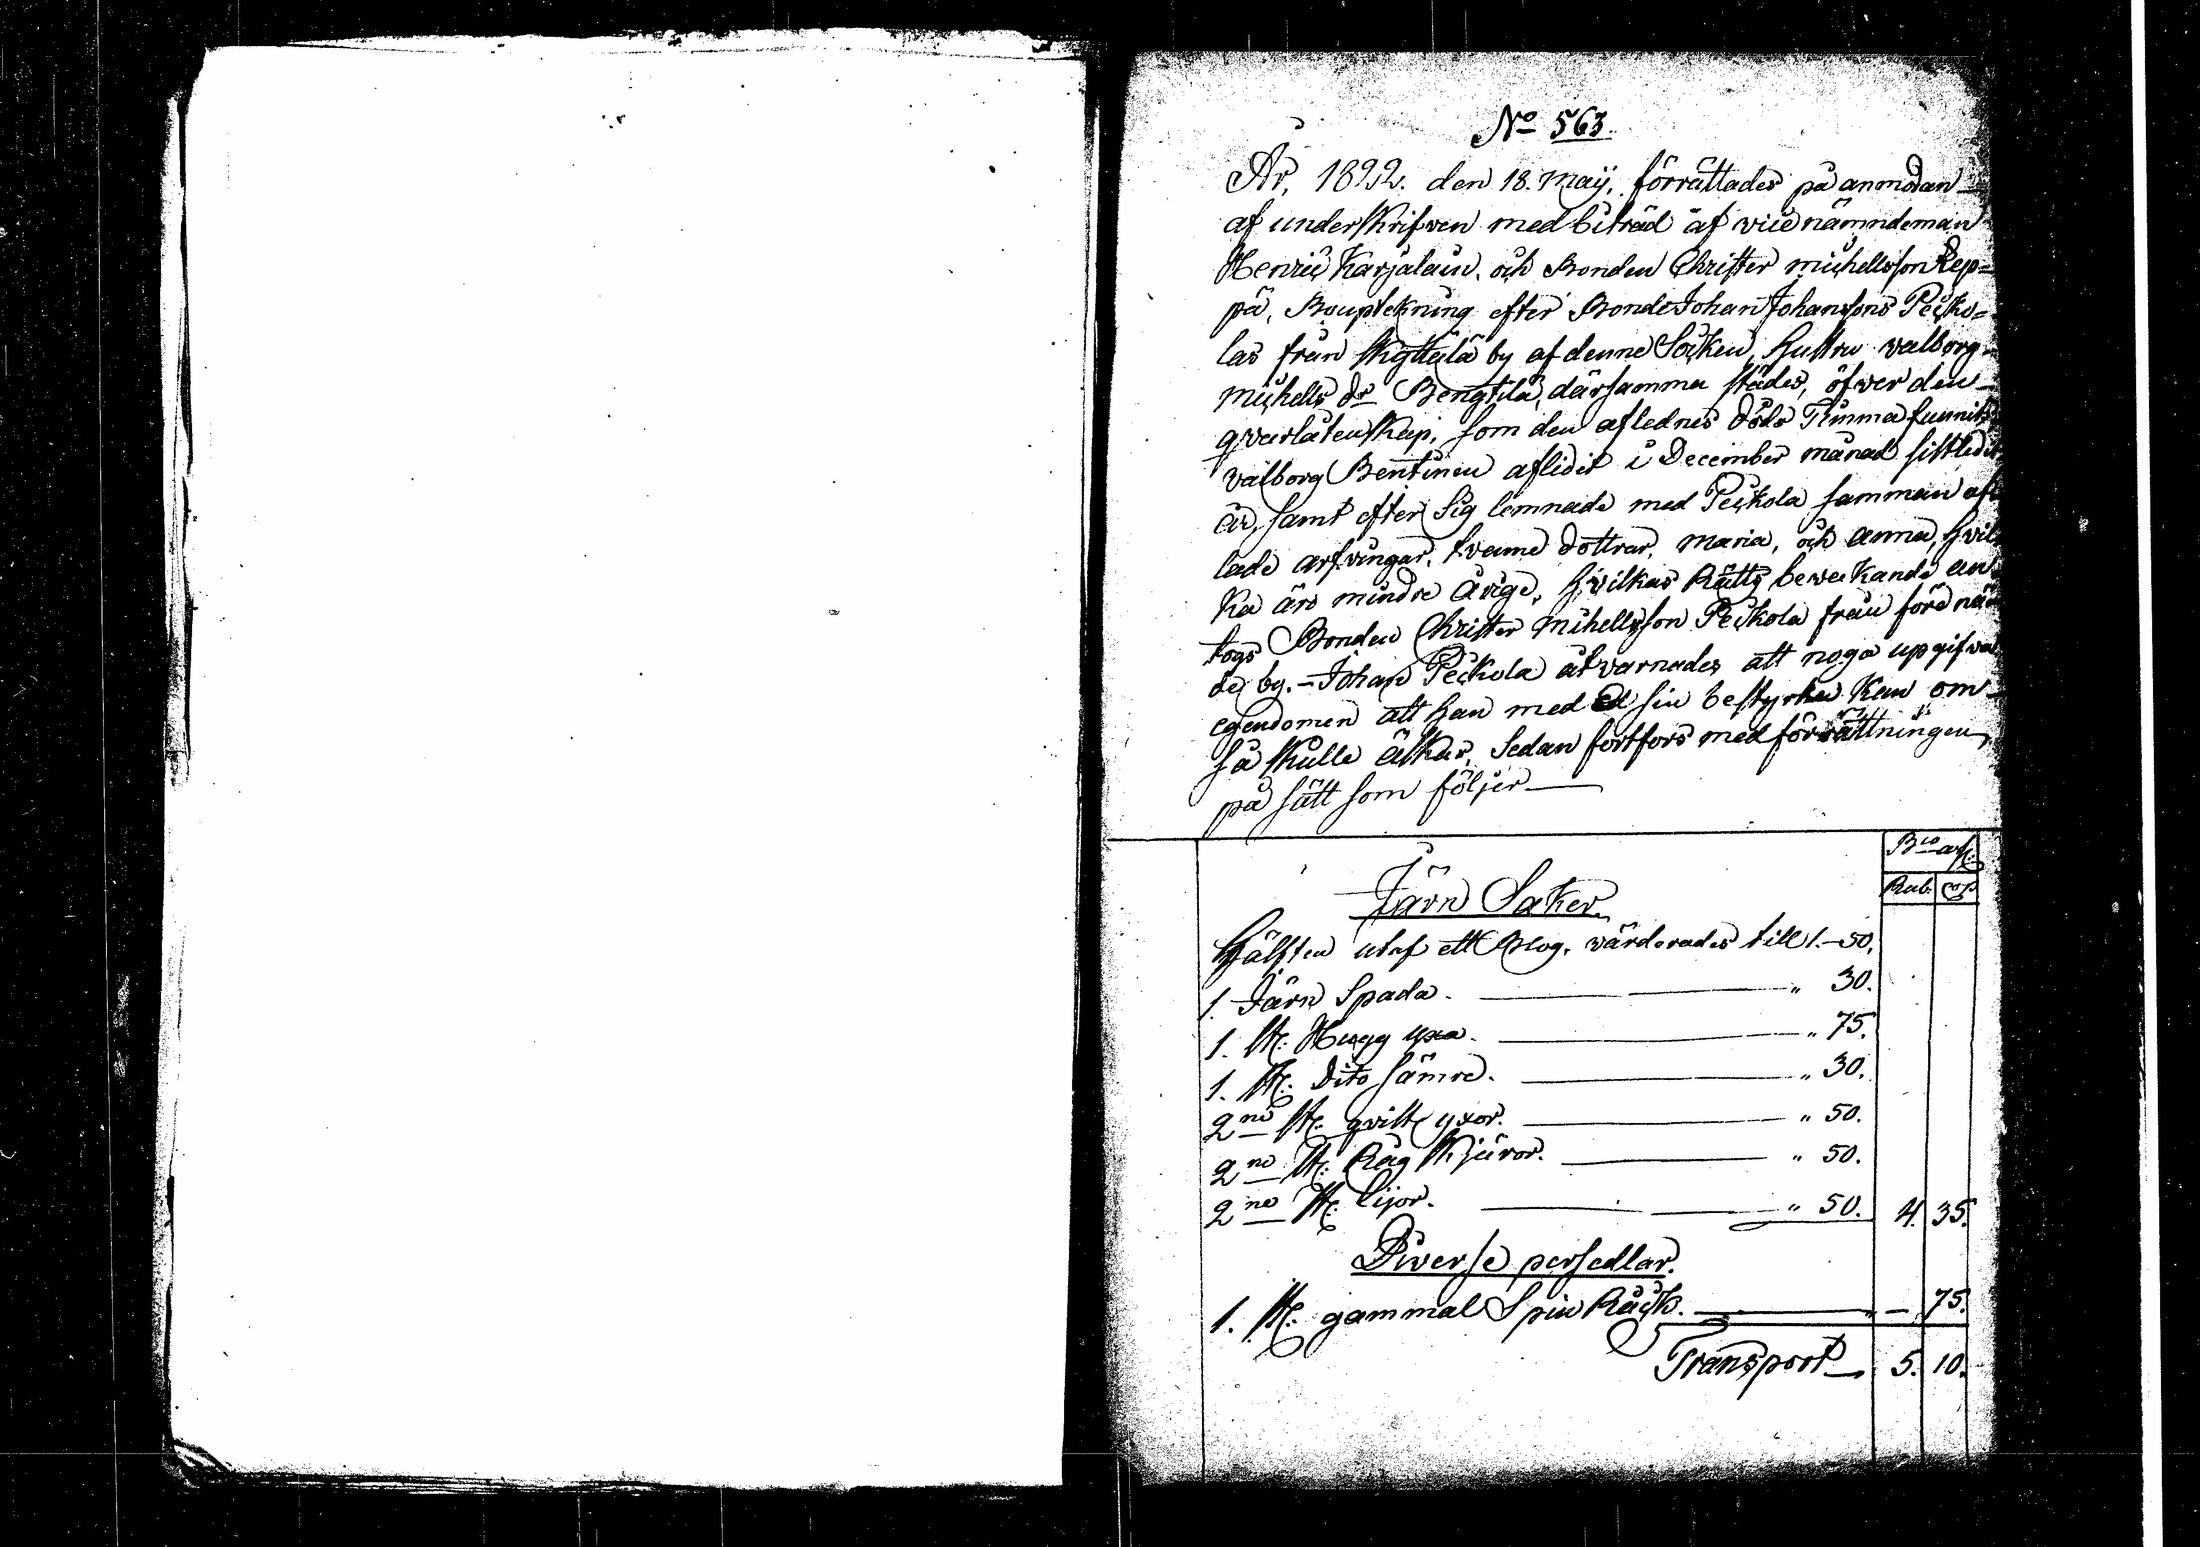 No 563.
År, 1822. den 18. Maÿ. förrättades på anmodan
af underskrifven med biträd af vice nämndeman
Henric Karjalain. och Bonden Christer Michellsson Rep=
pä, Bouptekning efter Bonde Johan Johanssons Pecko=
las från by af denne Socken, hustru valborg
Michells dr Bengtilä, därsamma städes, öfwer den
qvarlåtenskap, som den aflednes döds Timma funnits
valborg Bentinen aflidit i December månad sistledit
år, samt efter Sig lemnade med Peckola samman af=
lade arfvingar, tvenne dottrar, maria, och anna, hvil
ka äro mindre årige, hvilkas Rätts bevakande an
togs Bonden Christer Michellsson Peckola från före näm
de by. - Johan Peckola åtvarnades att noga upgifva
egendomen att han med Ed sin bestyrka kan om
så skulle äskas, Sedan fortfors med förrättningen,
på sätt som följer
Bco ass.
Rub. Cop
Järn Saker.
Hälften utaf ett Plog. wärderades till 1.-50.
1. Järn Spada. " 30.
1. st. Hugg yxa. " 75.
1. st. Dito sämre. " 30.
2ne st. qvist yxor. " 50.
2ne st. Råg skjäror. " 50.
2ne st. Lijor. " 50. 4. 35.
Diverse persedlar.
1. st. gammal Spin Råck. " - 75.
Transport 5. 10.